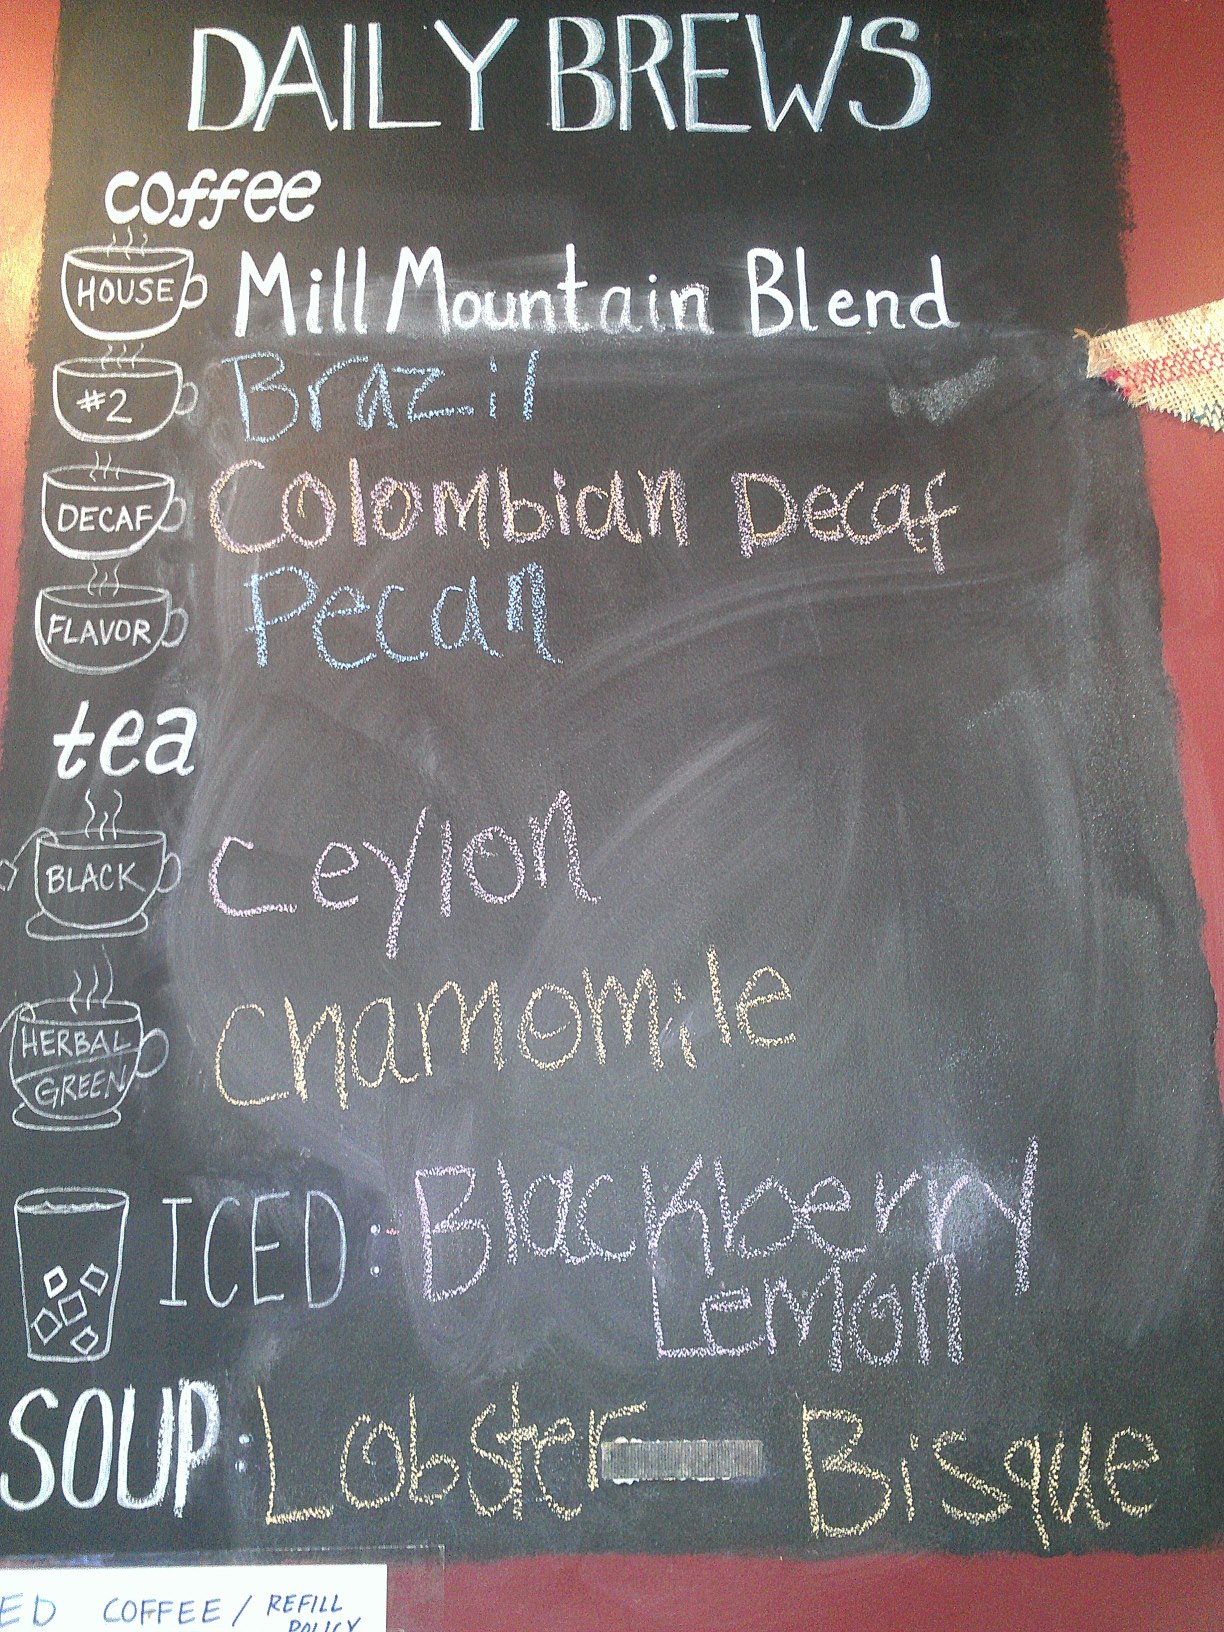 DAILY BREWS
coffee
HOUSE Mill Mountain Blend
#2 Brazil
DECAF Colombian Decaf
FLAVOR Pecan
tea
BLACK Ceylon
HERBAL Chamomile
GREEN
ICED: Blackberry
Lemon
SOUP: Lobster Bisque
ED COFFEE / REFILL
POLICY